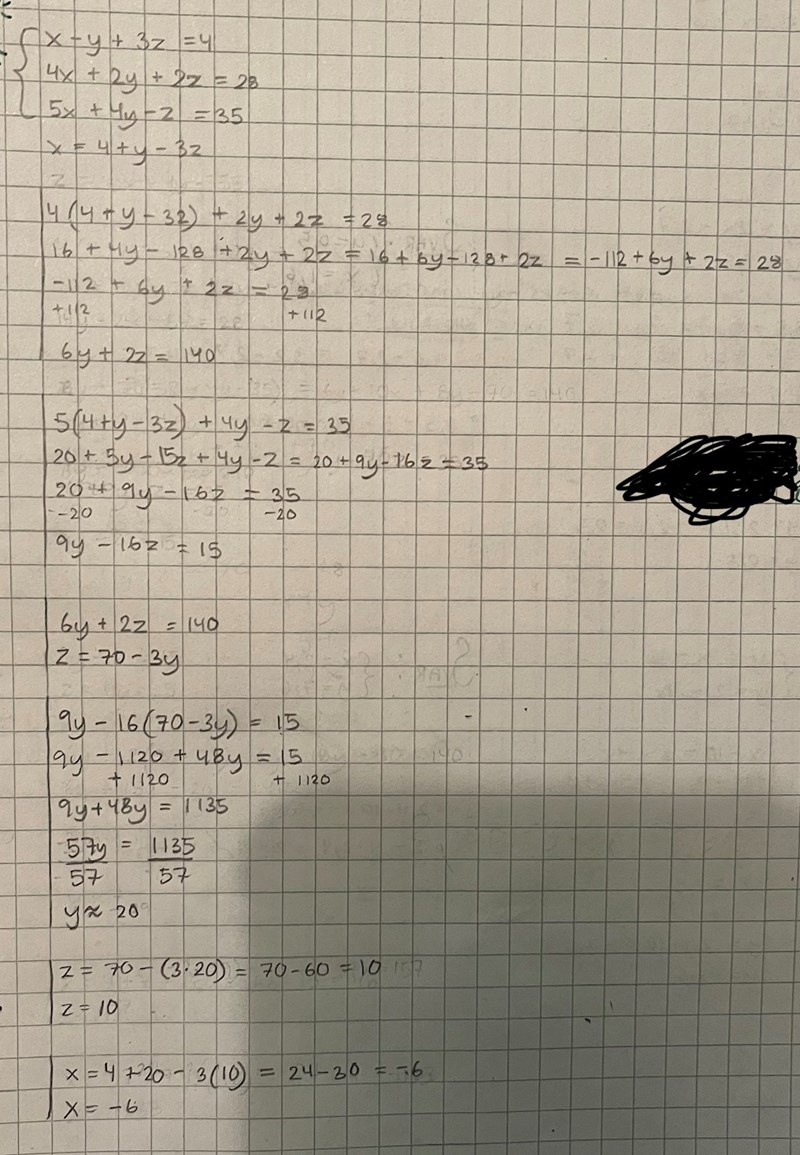 x - y + 3z = 4
4x + 2y + 2z = 28
5x + 4y - z = 35
x = 4 + y - 3z
4(4 + y - 32) + 2y + 2z = 28
16 + 4y - 128 + 2y + 2z = 16 + 6y - 128 + 2z = -112 + 6y + 2z = 28
-112 + 6y + 2z = 28
+112 +112
6y + 2z = 140
5(4 + y - 3z) + 4y - z = 35
20 + 5y - 15z + 4y - z = 20 + 9y - 16z = 35
20 + 9y - 16z = 35
-20 -20
9y - 16z = 15
6y + 2z = 140
z = 70 - 3y
9y - 16(70 - 3y) = 15
9y - 1120 + 48y = 15
+ 1120 + 1120
9y + 48y = 1135
57y = 1135
57 57
y ≈ 20
z = 70 - (3·20) = 70 - 60 = 10
z = 10
x = 4 + 20 - 3(10) = 24 - 30 = -6
x = -6